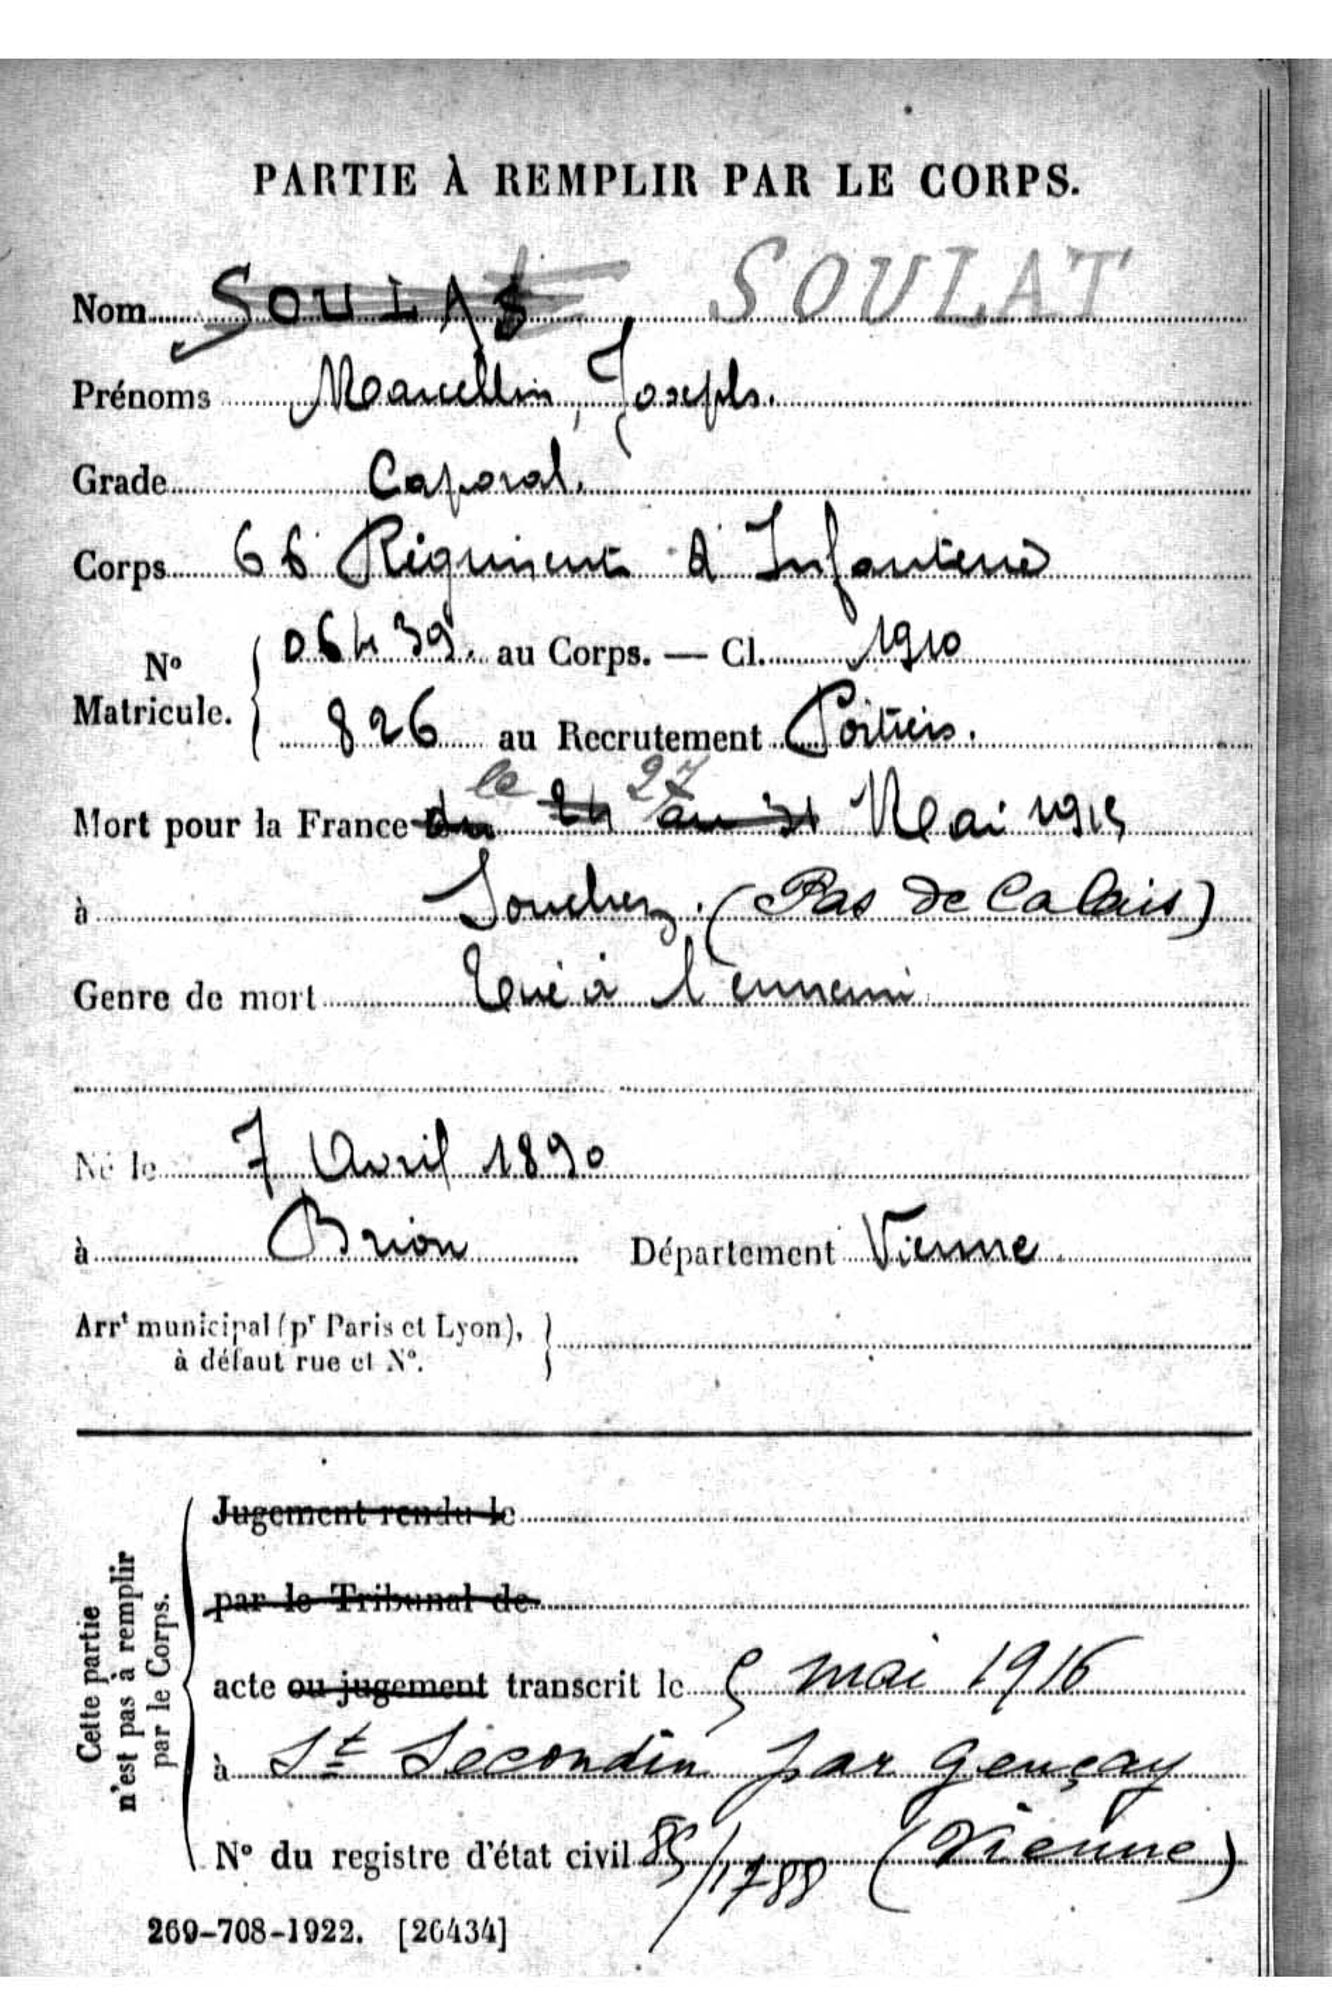 PARTIE À REMPLIR PAR LE CORPS.
Nom SOULAS SOULAT
Prénoms Marcellin, Joseph.
Grade Caporal.
Corps 66 Régiment d'Infanterie
N° Matricule. 06439. au Corps. — Cl. 1910
826 au Recrutement Poitiers.
le 27
Mort pour la France du 24 au 31 Mai 1915
à Souchez. (Pas de Calais)
Genre de mort Tué à l'ennemi
Né le 7 Avril 1890
à Brion Département Vienne
Arrt municipal (pr Paris et Lyon),
à défaut rue et N°.
Cette partie
n'est pas à remplir
par le Corps.
Jugement rendu le
par le Tribunal de
acte ou jugement transcrit le 5 mai 1916
à St Secondin par Gençay
N° du registre d'état civil 85/1788 (Vienne)
269-708-1922. [26434]